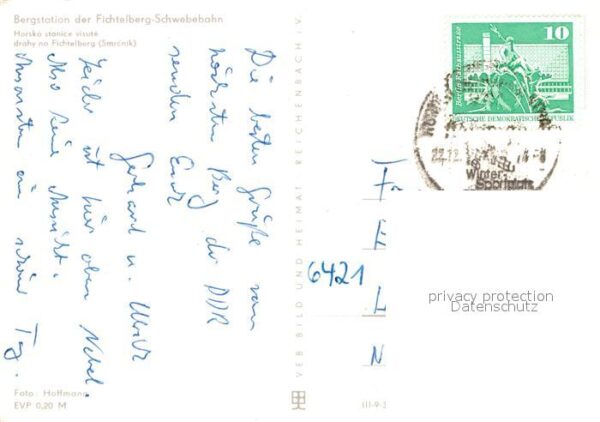 Bergstation der Fichtelberg-Schwebebahn
Horská stanice visuté
drahy na Fichtelberg (Smrčník)
Die besten Grüße vom
höchsten Berg der DDR
senden Euch
Gerhard u.
Leider ist hier oben Nebel.
Also keine Aussicht.
Ansonsten ein schöner Tag.
Foto: Hoffmann
EVP 0,20 M
VEB BILD UND HEIMAT REICHENBACH I. V.
III-9-3
10
Berlin Rathausstraße
DEUTSCHE DEMOKRATISCHE REPUBLIK
22.12.
Winter-
Sportplatz
Fa
E
L
N
6421
privacy protection
Datenschutz